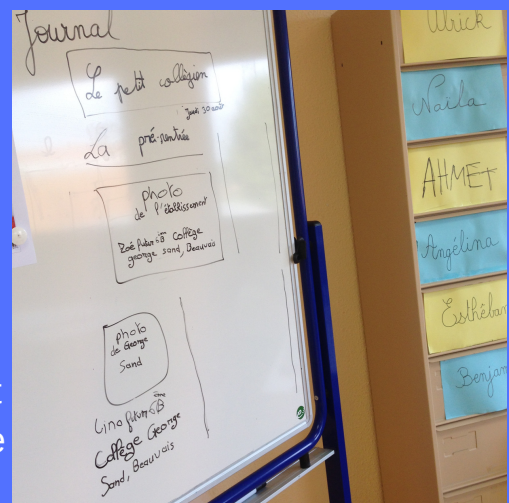 Journal
Le petit collégien
Jeudi 30 août
La pré-rentrée
photo
de l'établissement
Zoé futur 6ème B Collège
george sand, Beauvais
photo
de George
Sand
Lino futur 6ème B
Collège George
Sand, Beauvais
Ulrick
Naïla
AHMET
Angélina
Esthéban
Benjam